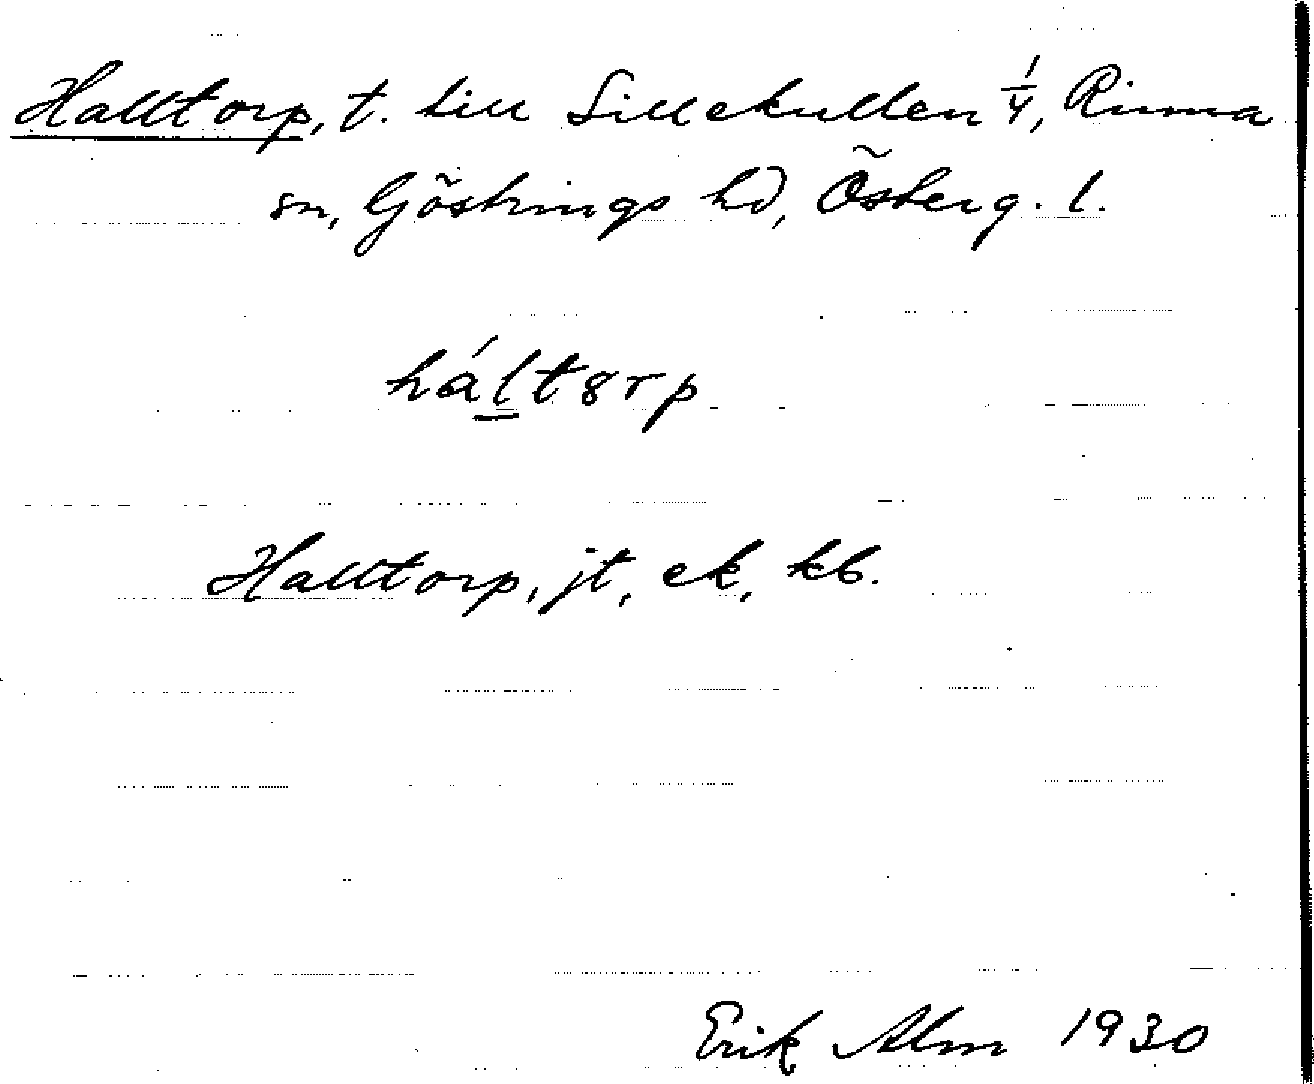 Halltorp, t. till Lillekullen 1/4, Rinna
sn, Göstrings hd, Österg. l.
háltorp
Halltorp, jt, ek, kb.
Erik Alm 1930